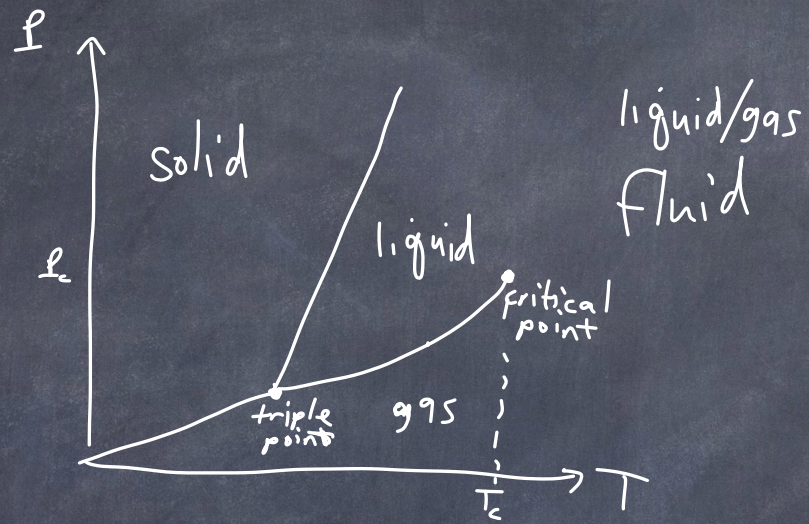 P
solid
liquid/gas
fluid
liquid
Pc
critical
point
triple
point
gas
Tc
T